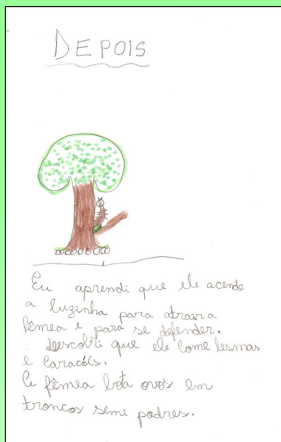 DEPOIS
Eu aprendi que ele acende
a luzinha para atraira
fêmea e para se defender.
descobri que ele come lesmas
e caracóis.
A fêmea bota ovos em
troncos semi podres.